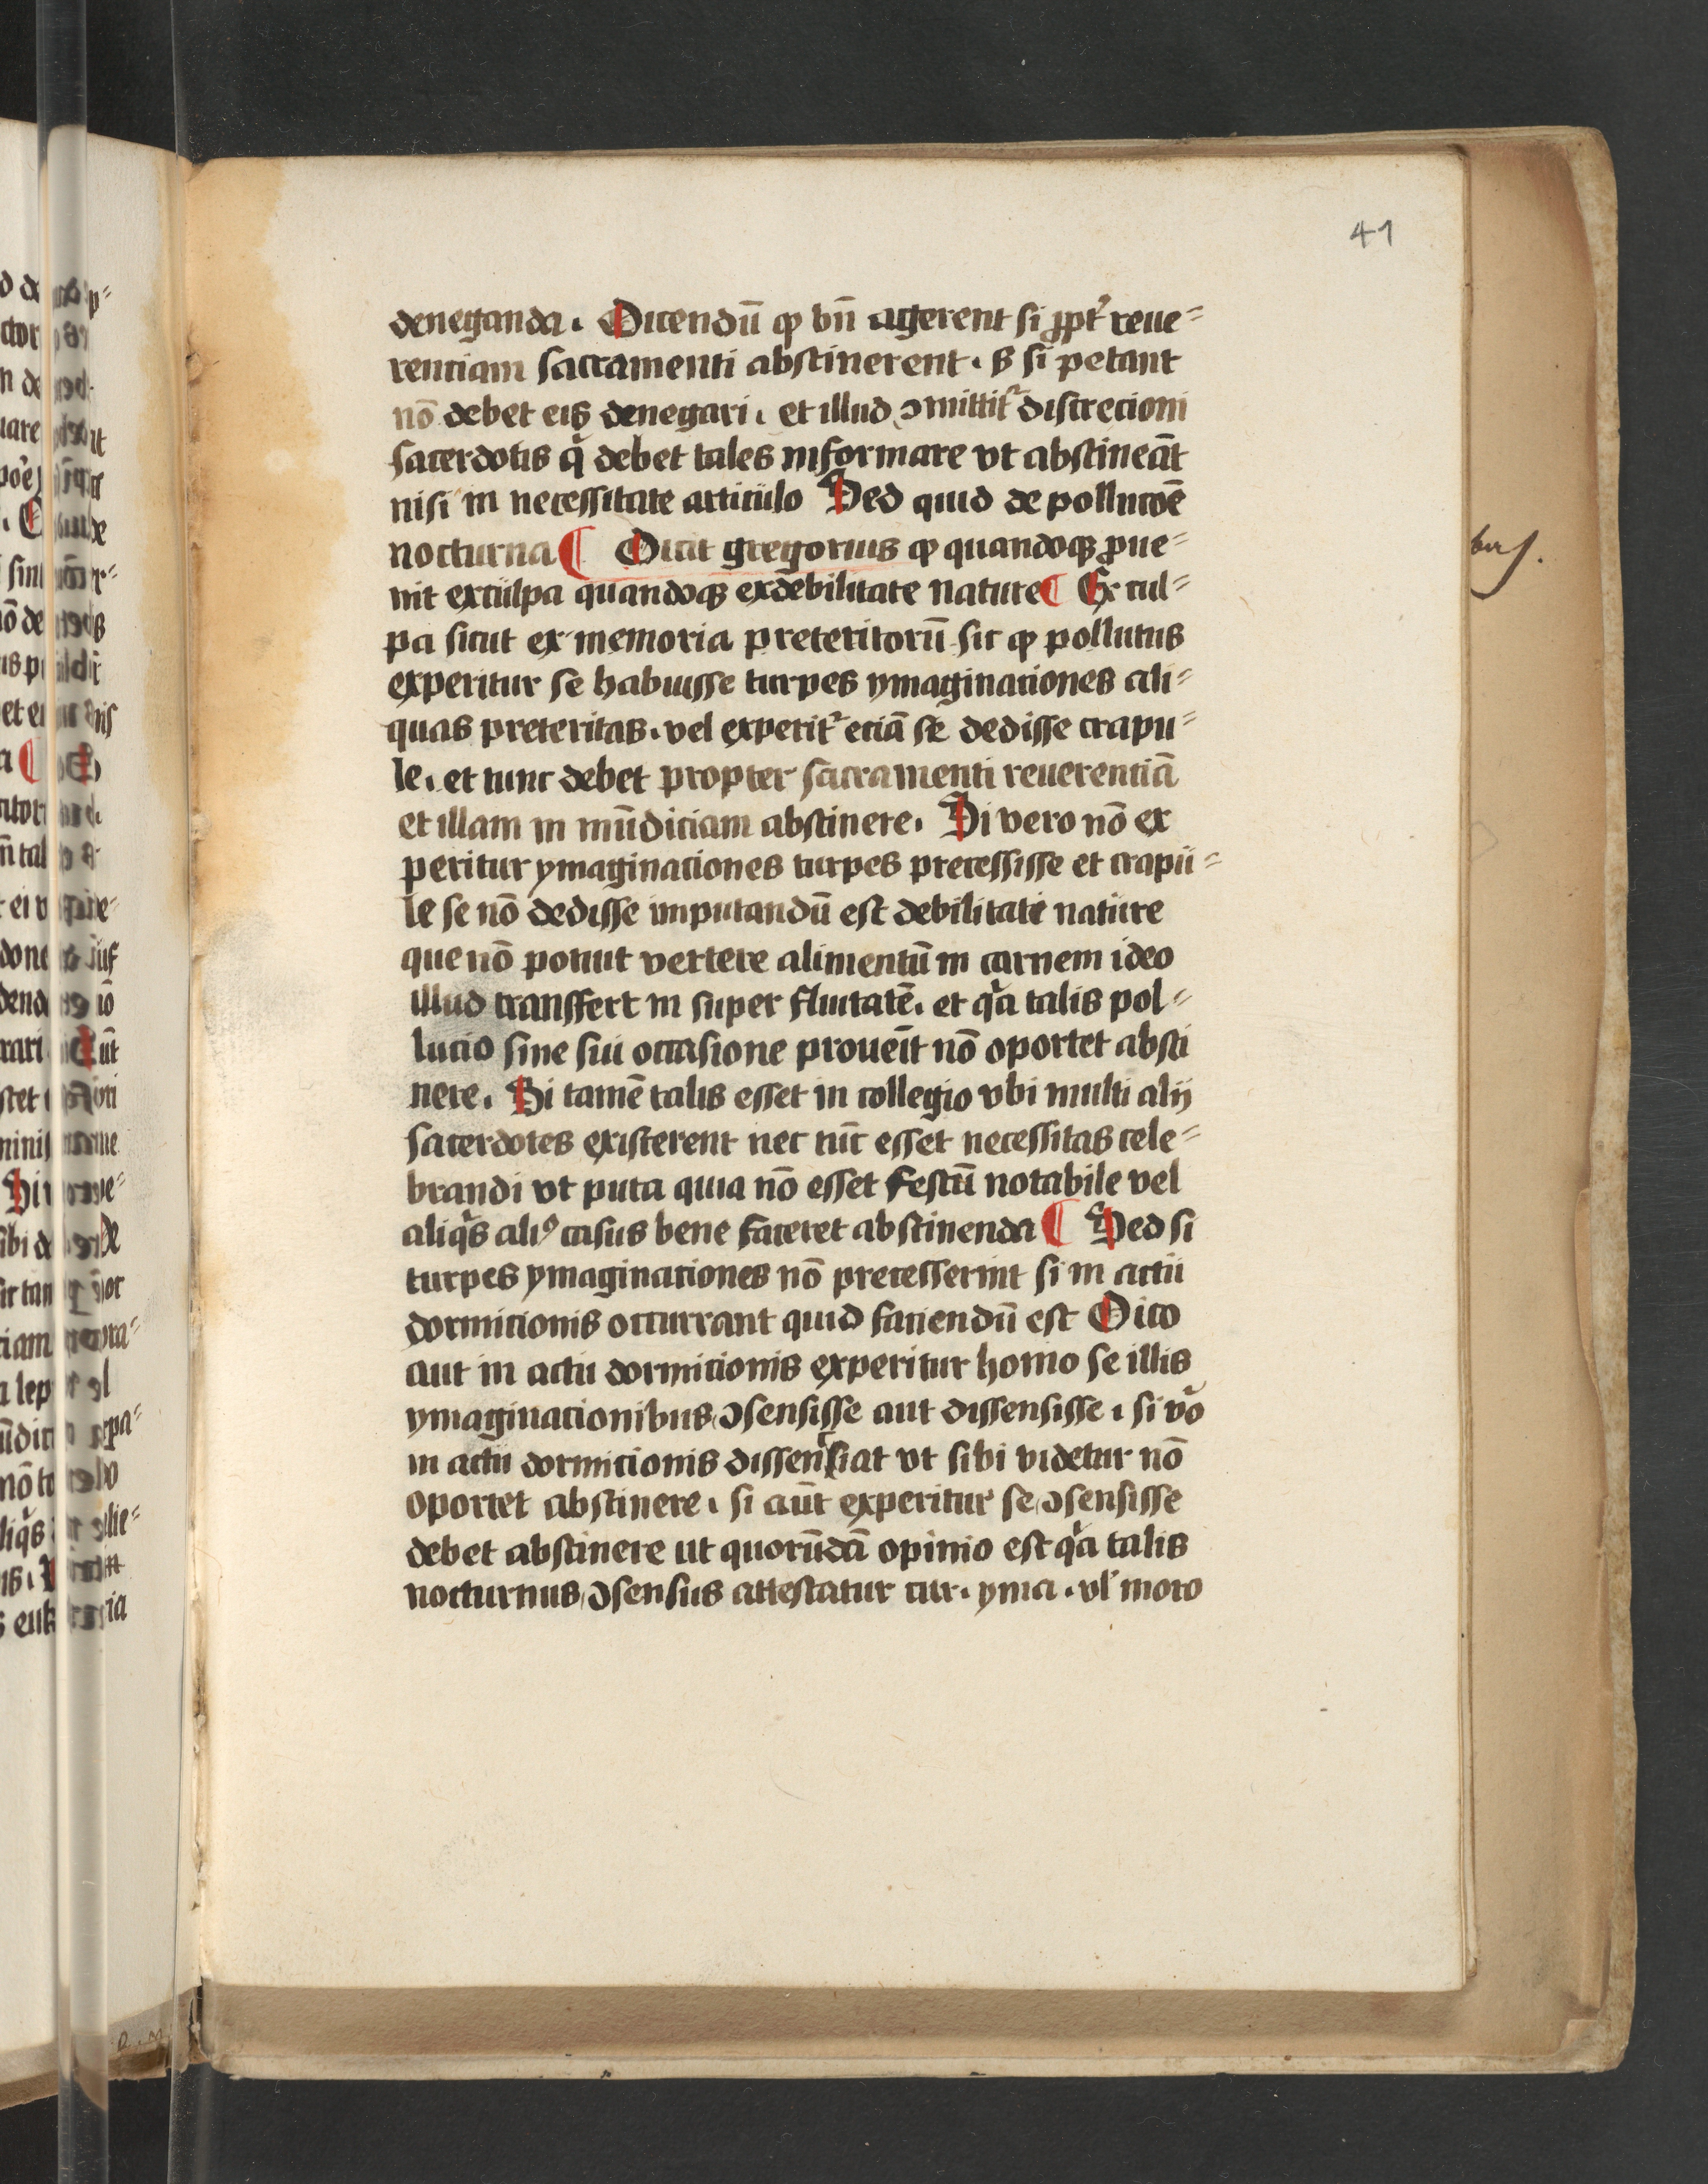 41
deneganda. Dicendū ꝙ bn̄ agerent si ꝓpt᷑ reue⸗
renciam sacramenti abstinerent. s̶ si petant
nō debet eis denegari. et illud ↄmittit᷑ discrecioni
sacerdotis qͥ debet tales informare vt abstineāt
nisi in necessitate articulo Sed quid de pollucōe
nocturna ¶ Dicit gregorius ꝙ quandoqꝫ ꝓue⸗
nit ex culpa quandoqꝫ ex debilitate nature ¶ Ex cul⸗
pa sicut ex memoria preteritorū sic ꝙ pollutus
experitur se habuisse turpes ymaginationes ali⸗
quas preteritas. vel experit᷑ eciā se dedisse crapu⸗
le. et tunc debet propter sacramenti reuerentiā
et illam in mūdiciam abstinere. Si vero nō ex
peritur ymaginationes turpes precessisse et crapu⸗
le se nō dedisse imputandū est debilitati nature
que nō potuit vertere alimentū in carnem ideo
illud transffert in super fluitatē. et qͣa talis pol⸗
lucio sine sui occasione proueīt nō oportet absti
nere. Si tamē talis esset in collegio vbi multi alij
sacerdotes existerent nec tūc esset necessitas cele⸗
brandi vt puta quia nō esset festū notabile vel
aliqͥs aliꝰ casus bene faceret abstinenda ¶ Sed si
turpes ymaginationes nō precesserint si in actu
dormicionis occurrant quid faciendū est Dico
aut in actu dormicionis experitur homo se illis
ymaginacionibus ↄsensisse aut dissensisse. si vͦo
in actu dormicionis dissensiat vt sibi videtur nō
oportet abstinere. si aūt experitur se ↄsensisse
debet abstinere ut quorūdā opinio est qͣa talis
nocturnus ↄsensus attestatur cur. yma. vl̕ moto